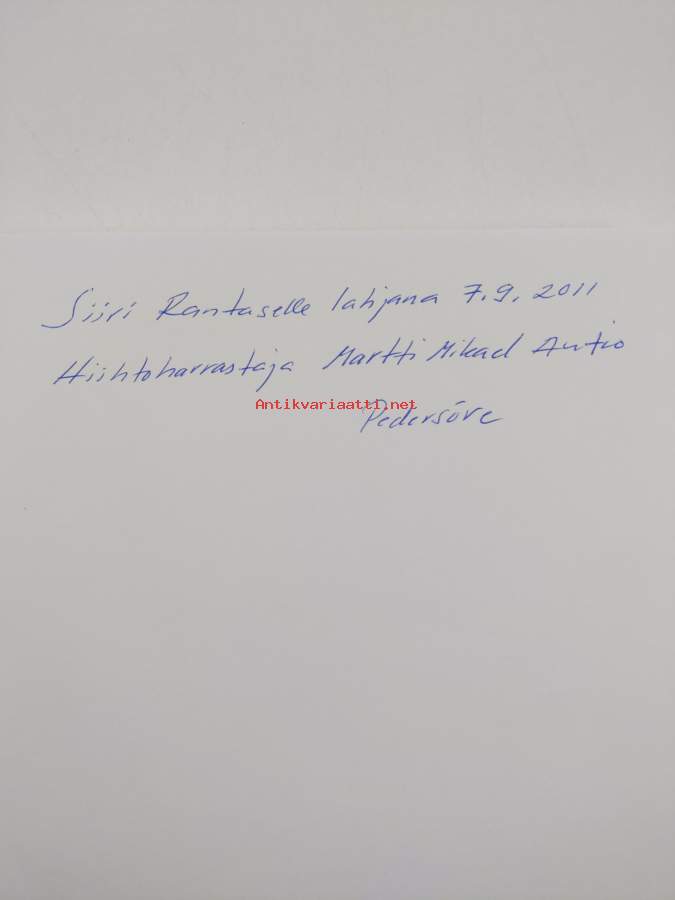 Siiri Rantaselle lahjana 7.9.2011
Hiihtoharrastaja Martti Mikael Autio
Antikvariaatti.net
Pedersöre